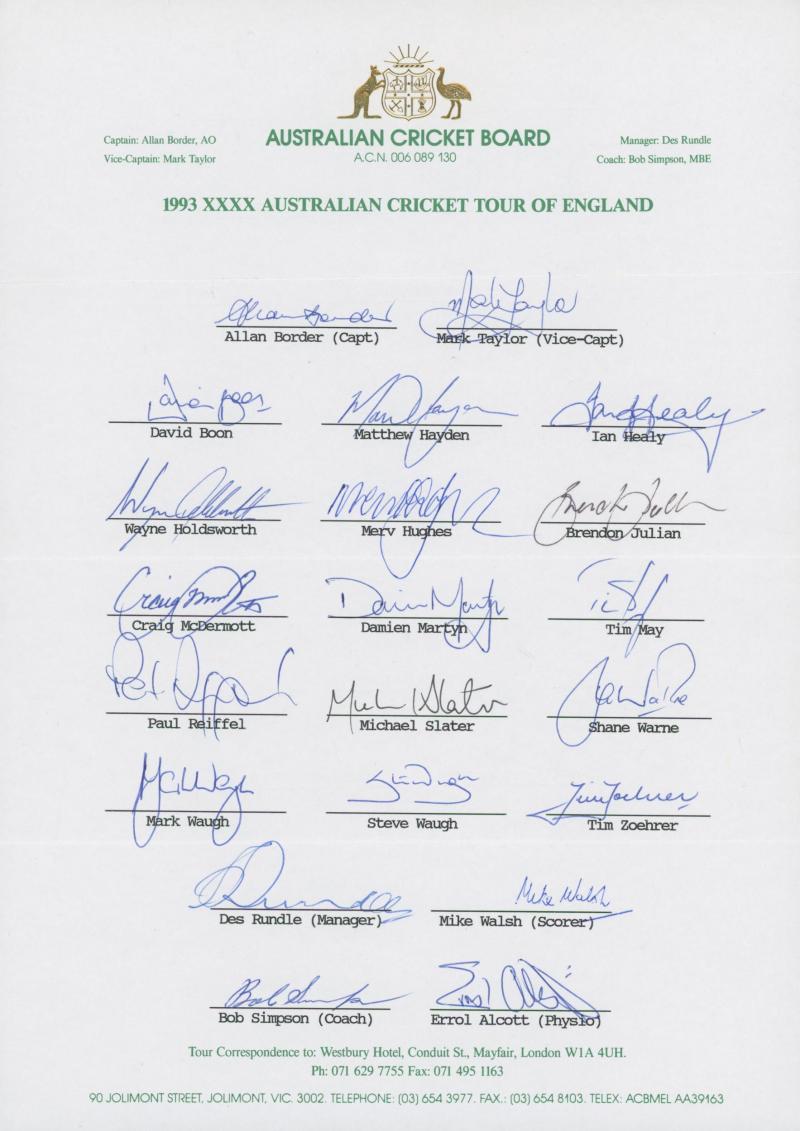 Captain: Allan Border, AO
Vice-Captain: Mark Taylor
AUSTRALIAN CRICKET BOARD
A.C.N. 006 089 130
Manager: Des Rundle
Coach: Bob Simpson, MBE
1993 XXXX AUSTRALIAN CRICKET TOUR OF ENGLAND
Allan Border Mark Taylor
Allan Border (Capt) Mark Taylor (Vice-Capt)
David Boon Ian Healy
David Boon Matthew Hayden Ian Healy
Merv Hughes
Wayne Holdsworth Merv Hughes Brendon Julian
Craig McDermott Damien Martyn
Craig McDermott Damien Martyn Tim May
Michael Slater
Paul Reiffel Michael Slater Shane Warne
Steve Waugh Tim Zoehrer
Mark Waugh Steve Waugh Tim Zoehrer
D Rundle Mike Walsh
Des Rundle (Manager) Mike Walsh (Scorer)
Bob Simpson Errol Alcott
Bob Simpson (Coach) Errol Alcott (Physio)
Tour Correspondence to: Westbury Hotel, Conduit St., Mayfair, London W1A 4UH.
Ph: 071 629 7755 Fax: 071 495 1163
90 JOLIMONT STREET, JOLIMONT, VIC. 3002. TELEPHONE: (03) 654 3977. FAX.: (03) 654 8103. TELEX: ACBMEL AA39163